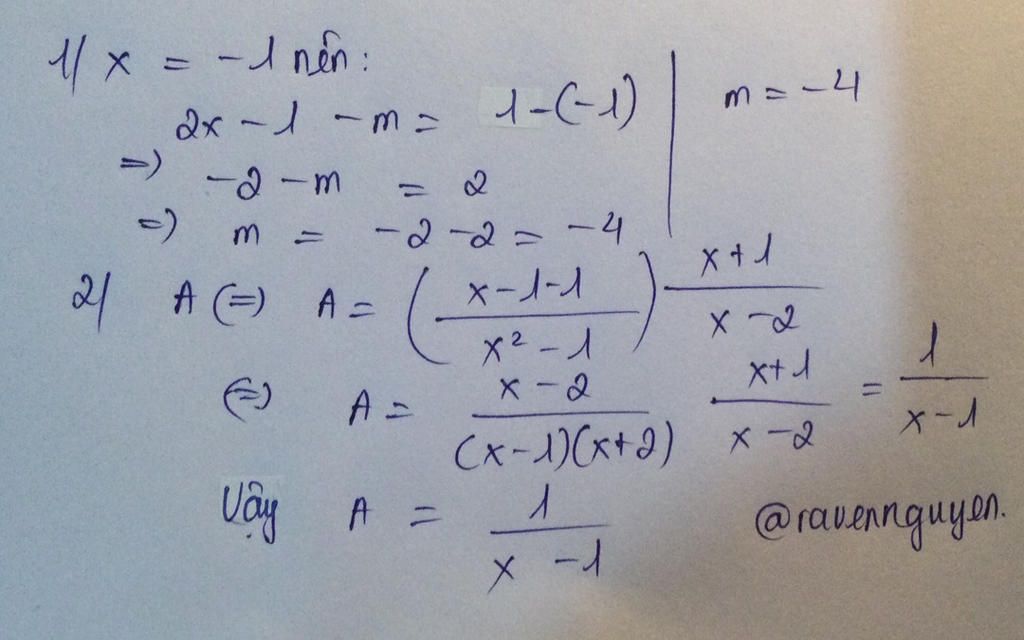 1/ x = -1 nên:
2x - 1 - m = 1 - (-1) | m = -4
=> -2 - m = 2
=> m = -2 - 2 = -4
2/ A (=) A = ( (x - 1 - 1)/(x² - 1) ) (x + 1)/(x - 2)
(=) A = (x - 2)/((x - 1)(x + 2)) (x + 1)/(x - 2) = 1/(x - 1)
Vậy A = 1/(x - 1) @ravennguyen.